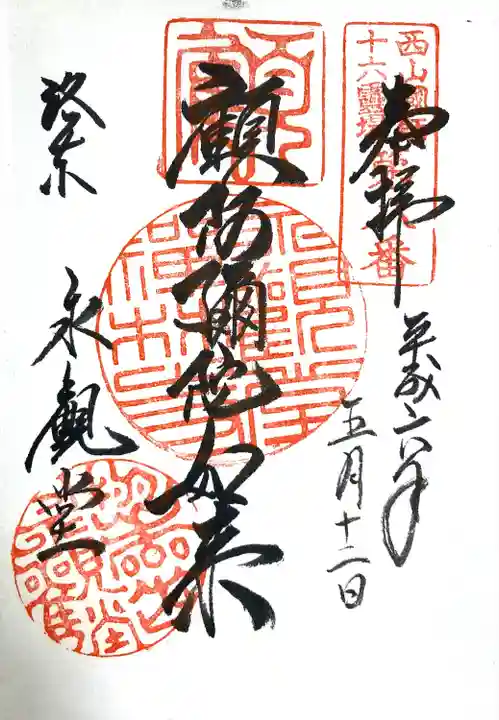 奉拝
平成二六年
五月十二日
顧阿彌陀如来
洛東
永觀堂
西山國
十六靈場
番